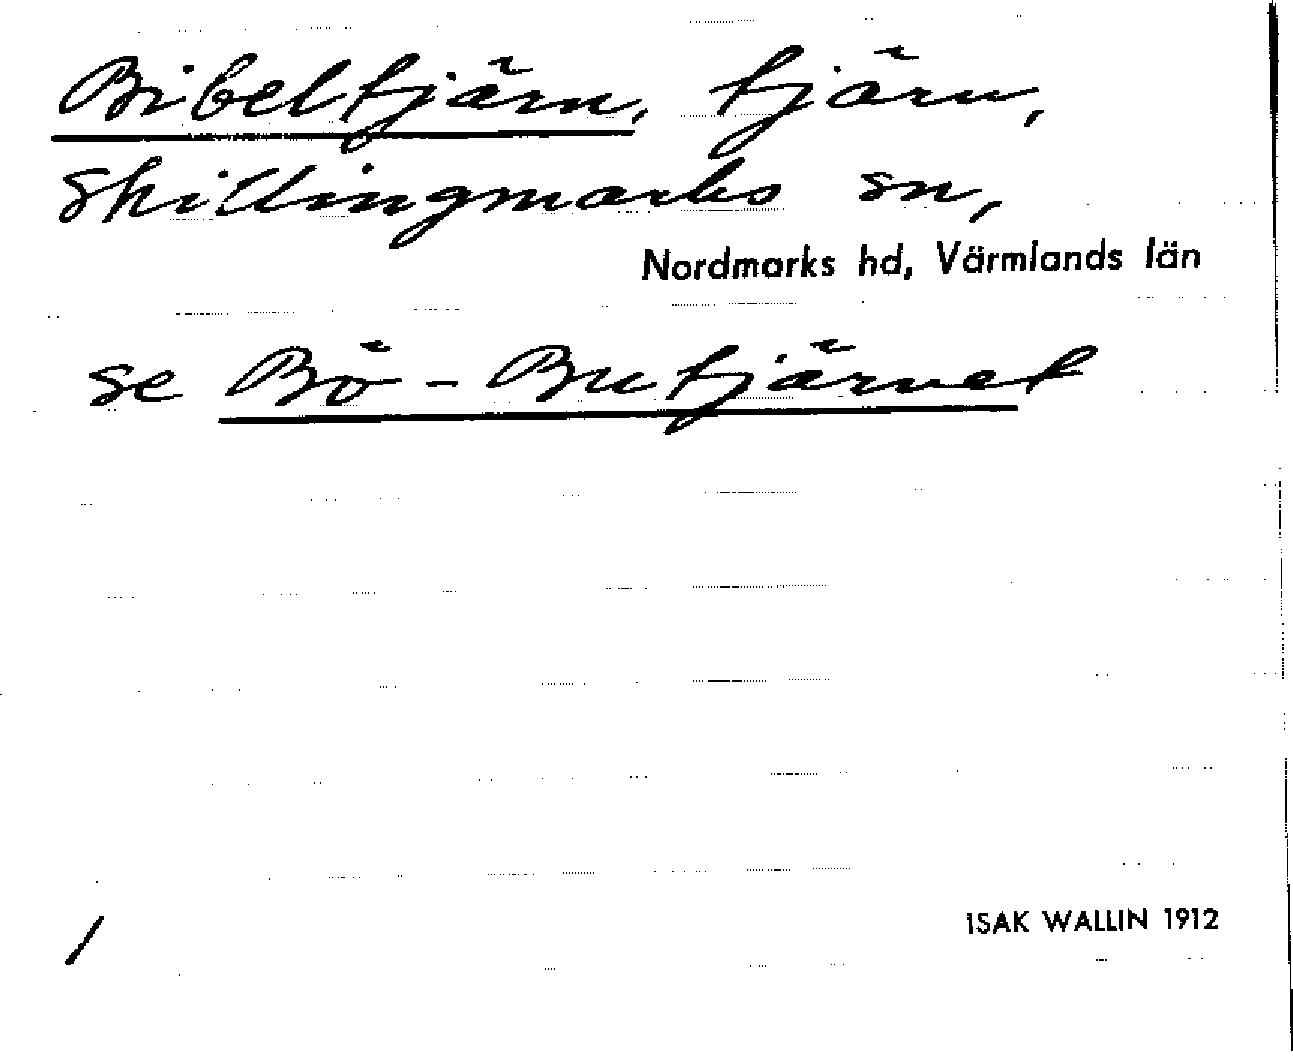 Bibeltjärn, tjärn,
Skillingmarks sn,
Nordmarks hd, Värmlands län
se Bö-Butjärnet
/
ISAK WALLIN 1912